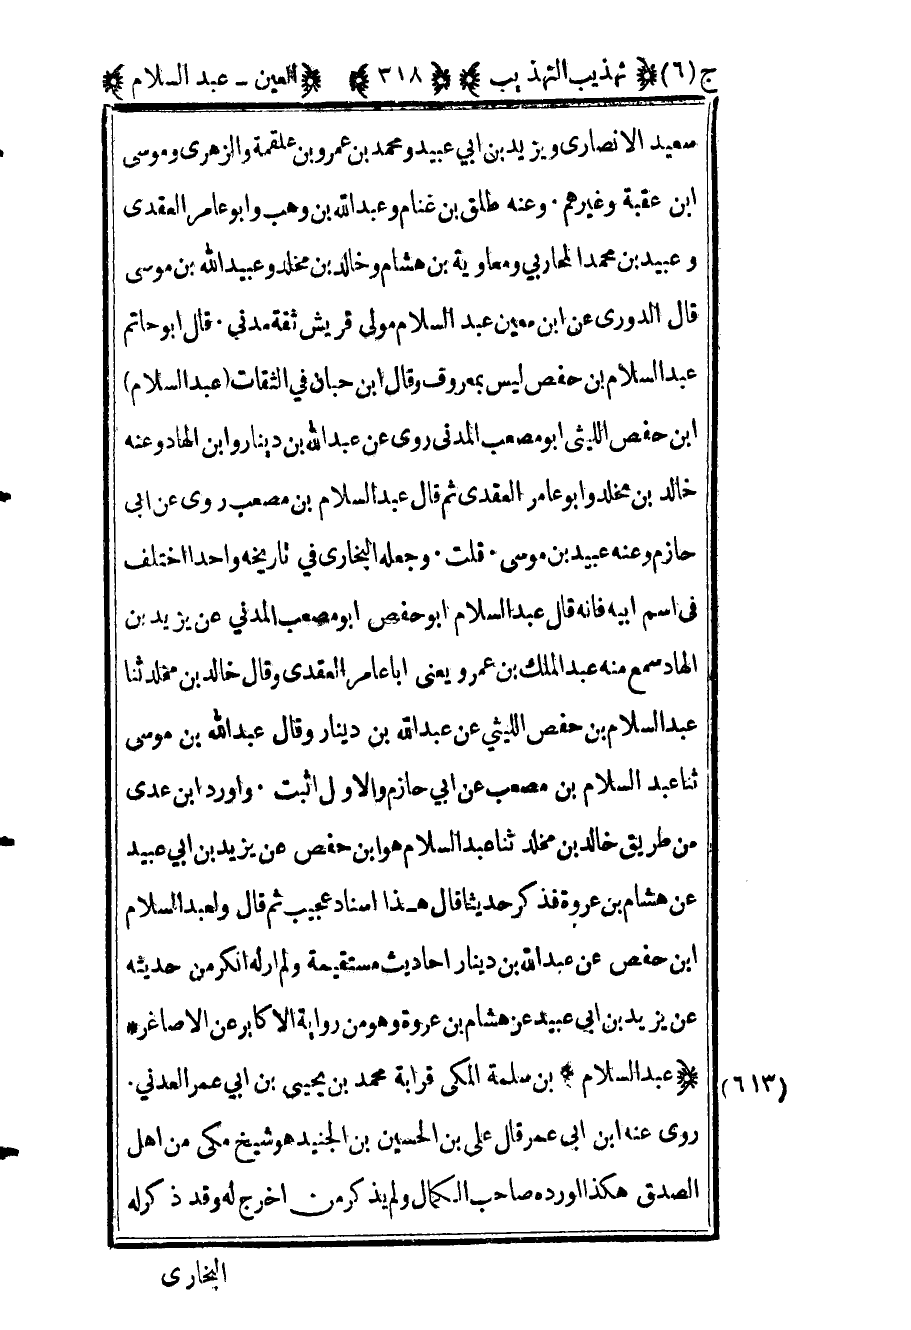 ج (٦) ﴿ تهذيب التهذيب ﴾ ﴿ ٣١٨ ﴾ ﴿ العين - عبد السلام ﴾
سعيد الانصارى ويزيد بن ابي عبيد ومحمد بن عمرو بن علقمة والزهرى وموسى
ابن عقبة وغيرهم · وعنه طلق بن غنام وعبدالله بن وهب وابو عامر العقدى
وعبيد بن محمد المحاربي ومعاوية بن هشام وخالد بن مخلد وعبيدالله بن موسى
قال الدورى عن ابن معين عبد السلام مولى قريش ثقة مدني · قال ابو حاتم
عبدالسلام بن حفص ليس بمعروف وقال ابن حبان في الثقات (عبدالسلام)
ابن حفص الليثى ابو مصعب المدنى روى عن عبدالله بن دينار وابن الهاد وعنه
خالد بن مخلد وابو عامر العقدى ثم قال عبدالسلام بن مصعب روى عن ابى
حازم وعنه عبيد بن موسى · قلت · وجعله البخارى في تاريخه واحدا اختلف
فى اسم ابيه فانه قال عبدالسلام ابو حفص ابو مصعب المدني عن يزيد بن
الهاد سمع منه عبدالملك بن عمرو يعنى ابا عامر العقدى وقال خالد بن مخلد ثنا
عبدالسلام بن حفص الليثي عن عبدالله بن دينار وقال عبدالله بن موسى
ثنا عبد السلام بن مصعب عن ابي حازم والاول اثبت · واورد ابن عدى
من طريق خالد بن مخلد ثنا عبدالسلام هو ابن حفص عن يزيد بن ابي عبيد
عن هشام بن عروة فذكر حديثا قال هـذا اسناد عجيب ثم قال ولعبد السلام
ابن حفص عن عبدالله بن دينار احاديث مستقيمة ولم ار له انكر من حديثه
عن يزيد بن ابى عبيد عن هشام بن عروة وهو من رواية الاكابر عن الاصاغر *
﴿ عبدالسلام ﴾ بن سلمة المكى قرابة محمد بن يحيى بن ابي عمر العدني · (٦١٣)
روى عنه ابن ابى عمر قال على بن الحسين بن الجنيد هو شيخ مكى من اهل
الصدق هكذا اورده صاحب الكمال ولم يذكر من اخرج له وقد ذكر له
البخارى